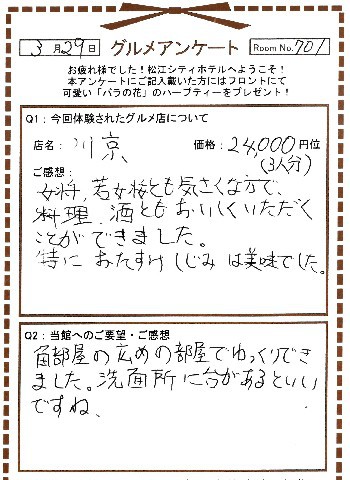 3月29日 グルメアンケート Room No. 701
お疲れ様でした！松江シティホテルへようこそ！
本アンケートにご記入戴いた方にはフロントにて
可愛い「バラの花」のハーブティーをプレゼント！
Q1：今回体験されたグルメ店について
店名： 川京、 価格： 24,000円位
(3人分)
ご感想：
女将、若女将とも気さくな方で、
料理、酒ともおいしくいただく
ことができました。
特に おたすけしじみ は美味でした。
Q2：当館へのご要望・ご感想
角部屋の広めの部屋でゆっくりでき
ました。洗面所に台があるといい
ですね、